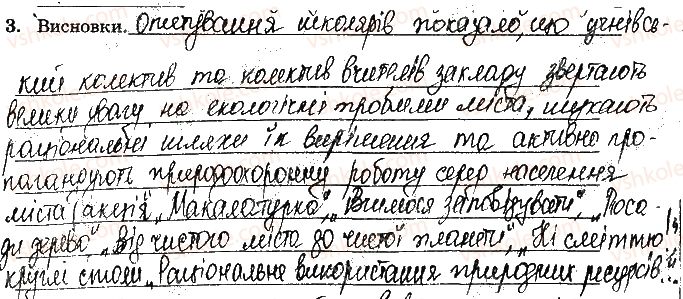 3. Висновки. Опитування школярів показало, що учнівсь-
кий колектив та колектив вчителів закладу звертають
велику увагу на екологічні проблеми міста, шукають
раціональні шляхи їх вирішення та активно про-
пагандують природоохоронну роботу серед населення
міста (акція „Макалатурка", „Вчимося заповідувати", „Поса-
ди дерево", „Від чистого міста до чистої планети", „Ні сміттю",
круглі столи „Раціональне використання природних ресурсів"